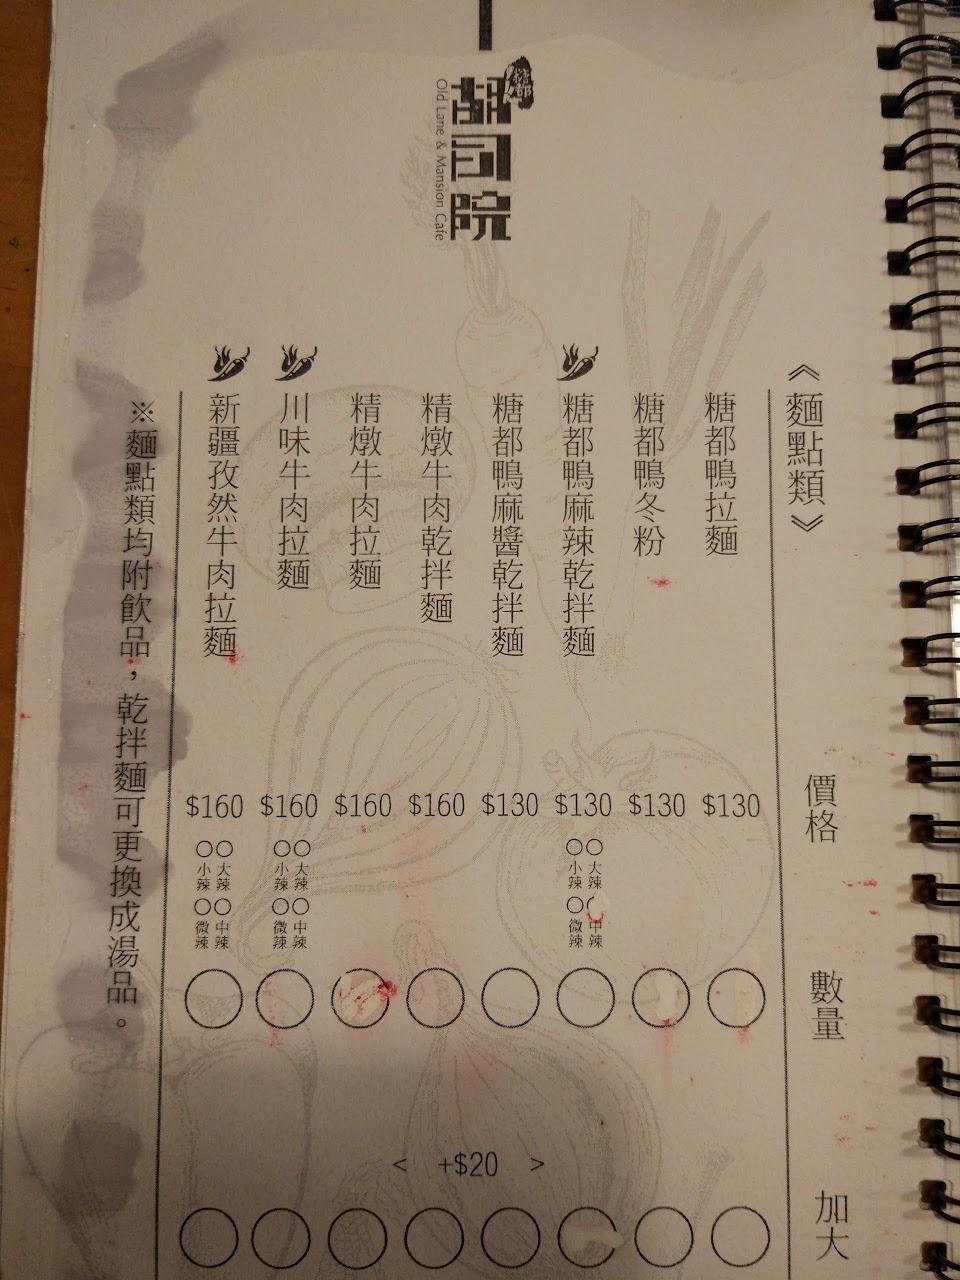 糖都
胡同院
Old Lane & Mansion Cafe
《麵點類》 價格 數量 加大
糖都鴨拉麵 $130
糖都鴨冬粉 $130
糖都鴨麻辣乾拌麵 $130 大辣 中辣 小辣 微辣
糖都鴨麻醬乾拌麵 $130
精燉牛肉乾拌麵 $160
精燉牛肉拉麵 $160
川味牛肉拉麵 $160 大辣 中辣 小辣 微辣
新疆孜然牛肉拉麵 $160 大辣 中辣 小辣 微辣
< +$20 >
※麵點類均附飲品，乾拌麵可更換成湯品。